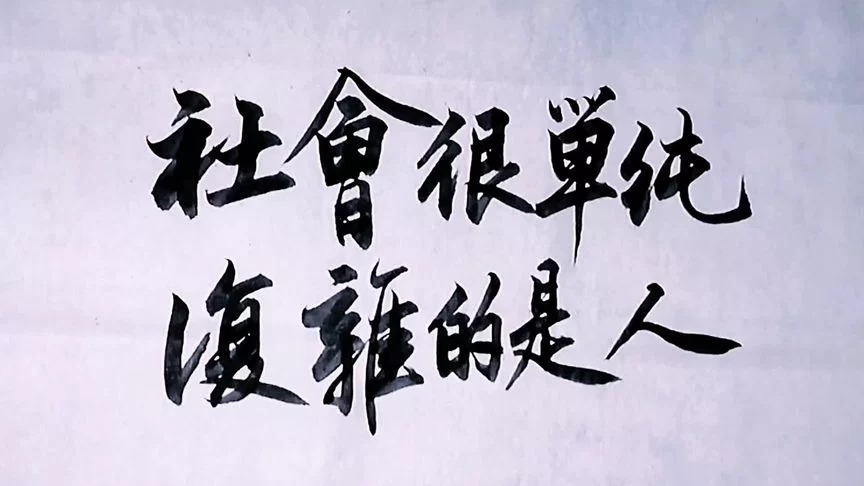 社會很単纯
復雜的是人